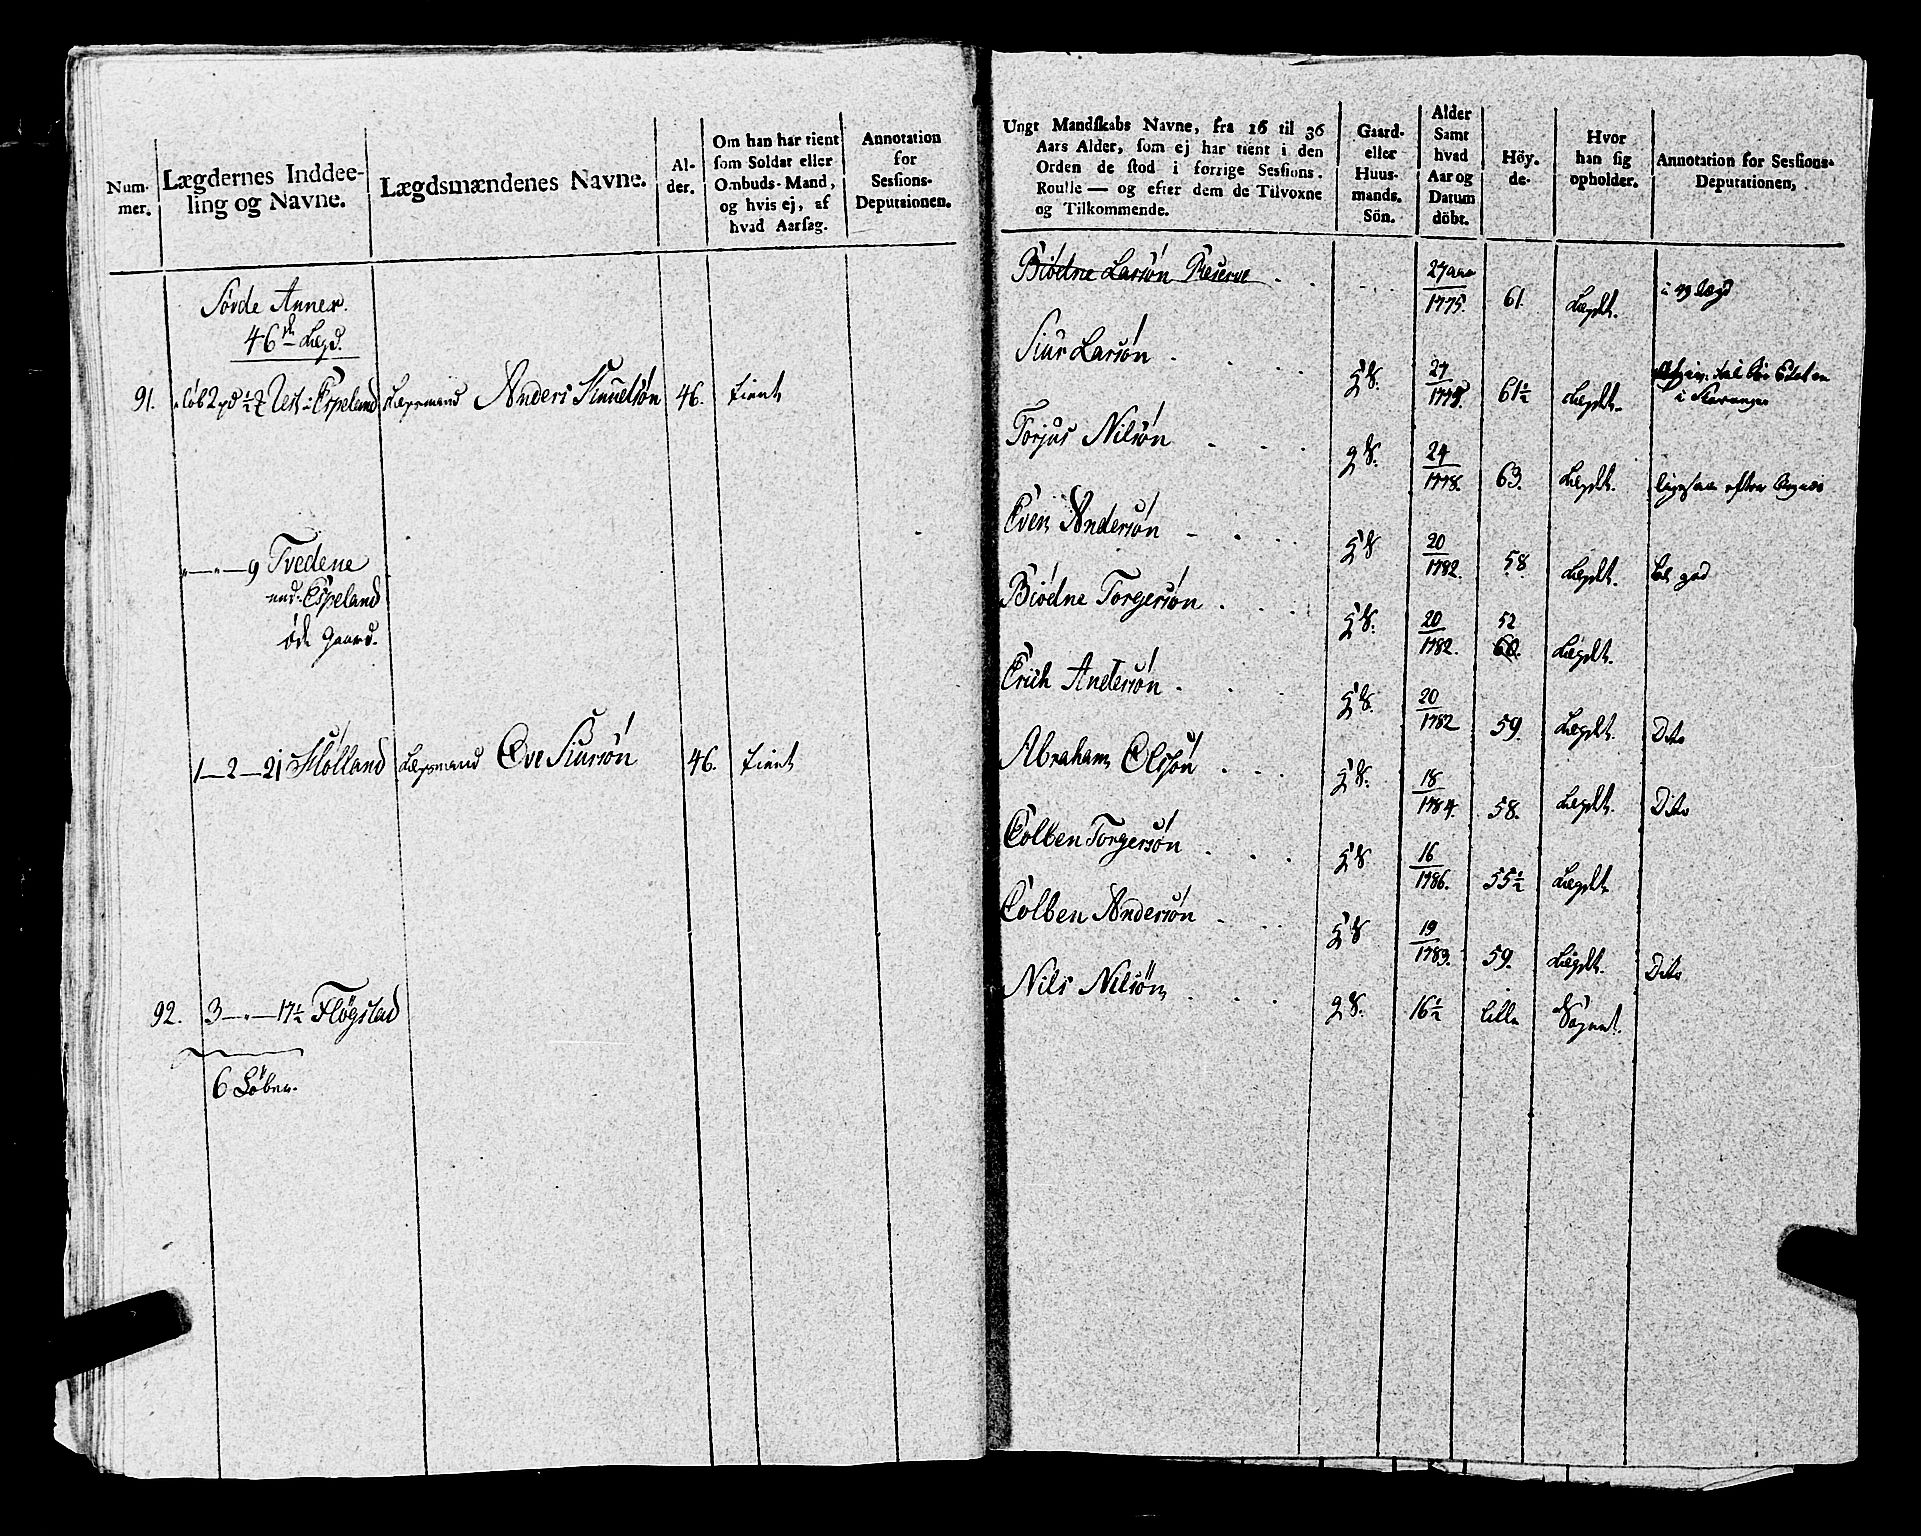 Num-
mer.
Lægdernes Inddee-
ling og Navne.
Lægdsmændenes Navne.
Al-
der.
Om han har tient
som Soldat eller
Ombuds-Mand,
og hvis ej, af
hvad Aarsag.
Annotation
for
Sessions-
Deputaionen.
Sövde Annex.
46de Lægd.
91. Espeland Lægsmand Anders 46. tient
9 Tvedene
und. Espeland
öde Gaard.
1—2—21 Lægsmand Ove Siursön 46. tient
92. 3—"—17½ Flögstad
6 Löber.
Ungt Mandskabs Navne, fra 16 til 36
Aars Alder, som ej har tient i den
Orden de stod i forrige Sessions-
Roulle — og efter dem de Tilvoxne
og Tilkommende.
Gaard-
eller
Huus-
mands-
Sön.
Alder
Samt
hvad
Aar og
Datum
döbt.
Höy-
de.
Hvor
han sig
opholder.
Annotation for Sessions-
Deputationen.
Biödne Larsön Reserve 27 aar 1775. 61. Lægdt. i 49 Lægd
Siur Larsön 24 1778. 61½ Lægdt.
i Stavanger
Torjus Nilsön 24 1778. 63. Lægdt.
Even Andersön 20 1782. 58. Lægdt.
Biödne Torgersön 20 1782. 52 60. Lægdt.
Erich Andersön 20 1782 59. Lægdt. Dito
Abraham Olsön 18 1784. 58. Lægdt. Dito
Colben Torgersön 16 1786. 55½ Lægdt.
Colben Andersön 19 1783. 59. Lægdt. Dito
Nils Nilsön 16½ lille Sognet.